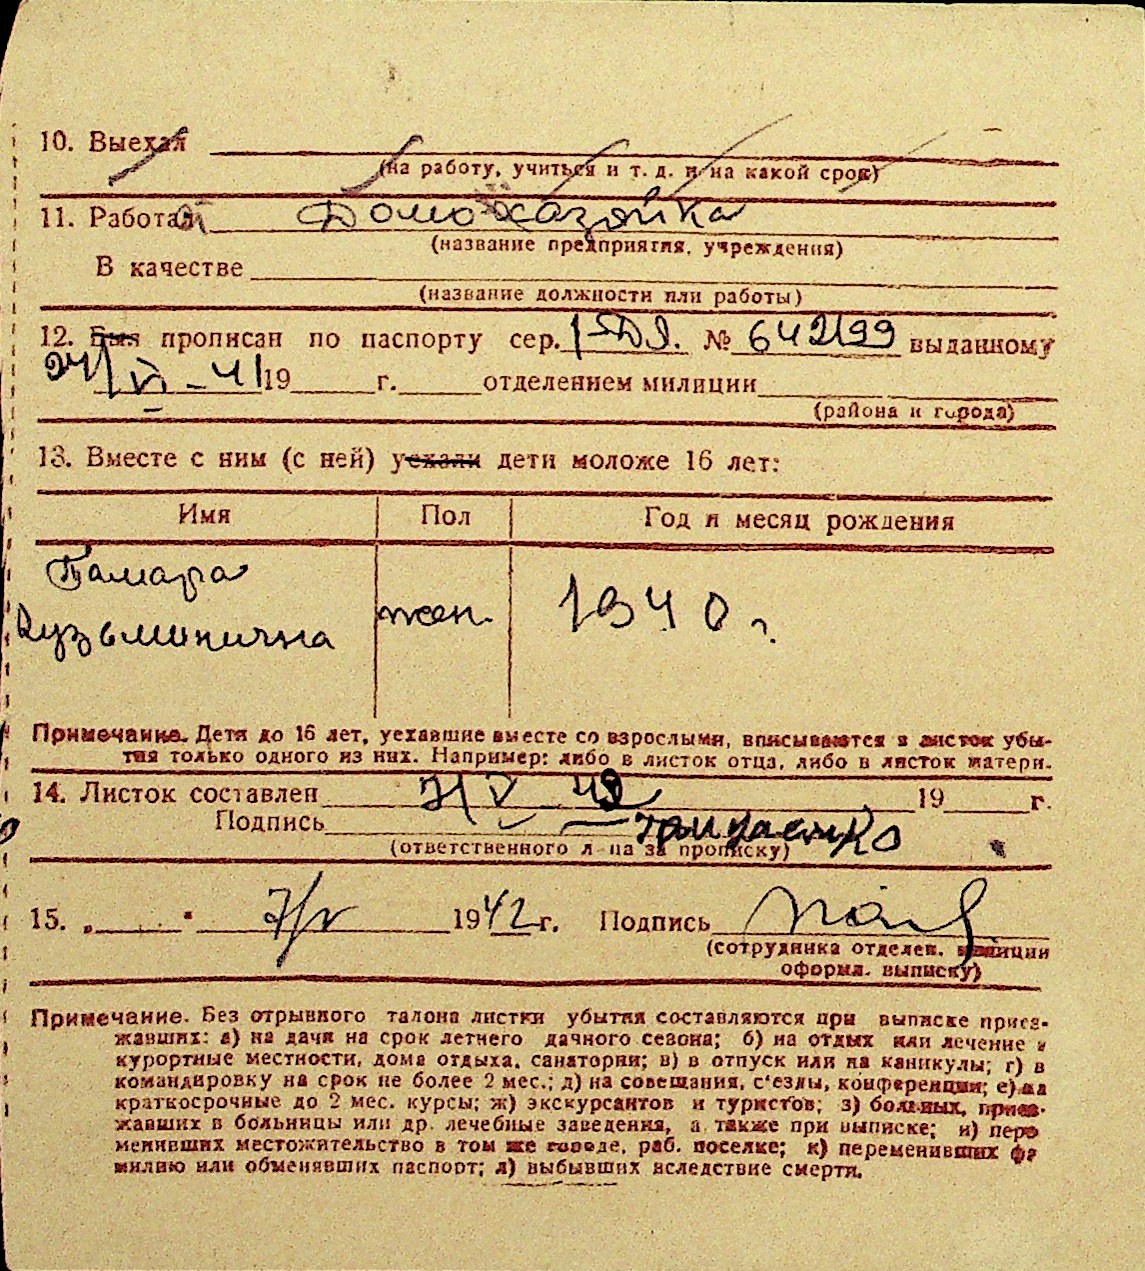 10. Выехал
(на работу, учиться и т. д. и на какой срок)
11. Работал Домохазяйка
(название предприятия, учреждения)
В качестве
(название должности или работы)
12. Был прописан по паспорту сер. № 642199 выданному
24/VI - 41 19 г. отделением милиции
(района и города)
13. Вместе с ним (с ней) уехали дети моложе 16 лет:
Имя Пол Год и месяц рождения
Тамара
Кузьминична жен. 1940 г.
Примечание. Дети до 16 лет, уехавшие вместе со взрослыми, вписываются в листок убы-
тия только одного из них. Например: либо в листок отца, либо в листок матери.
14. Листок составлен 7/V 42 19 г.
Подпись
(ответственного л-ца за прописку)
15. „ " 7/V 1942 г. Подпись
(сотрудника отделен. милиции
оформл. выписку)
Примечание. Без отрывного талона листки убытия составляются при выписке приез-
жавших: а) на дачи на срок летнего дачного сезона; б) на отдых или лечение в
курортные местности, дома отдыха, санатории; в) в отпуск или на каникулы; г) в
командировку на срок не более 2 мес.; д) на совещания, с'езды, конференции; е) на
краткосрочные до 2 мес. курсы; ж) экскурсантов и туристов; з) больных, приез-
жавших в больницы или др. лечебные заведения, а также при выписке; и) пере
менивших местожительство в том же городе, раб. поселке; к) переменивших фа
милию или обменявших паспорт; л) выбывших вследствие смерти.